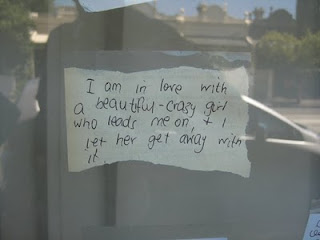 I am in love with
a beautiful-crazy girl
who leads me on, + I
let her get away with
it.